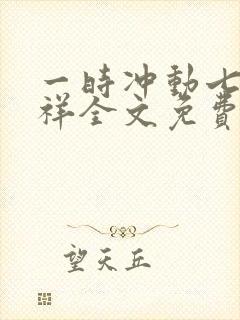 一時冲動七
祥全文免費
望天丘